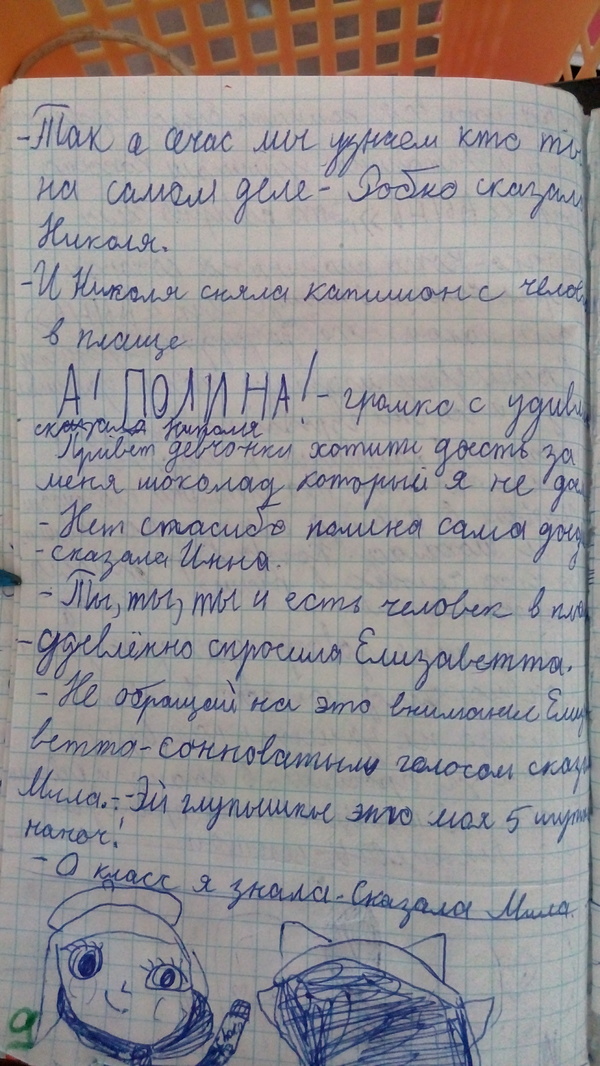 -Так а счас мы узнаем кто ты
на самом деле- Робко сказала
Николя.
-И Николя сняла капишон с челов
в плаще
А! ПОЛИНА!- громко с удивл
сказала Николя
Привет девчонки хотити доесть за
меня шоколад который я не до
- Нет спасибо полина сама доед
- сказала Инна.
- Ты, ты, ты и есть человек в пла
-удевлённо спросила Елизаветта.
- Не обращай на это внимания Елиза
ветта-сонноватым голосом сказа
Мила.--Эй глупышки это моя 5 шутка
наноч!
- О класс я знала-Сказала Мила.
9